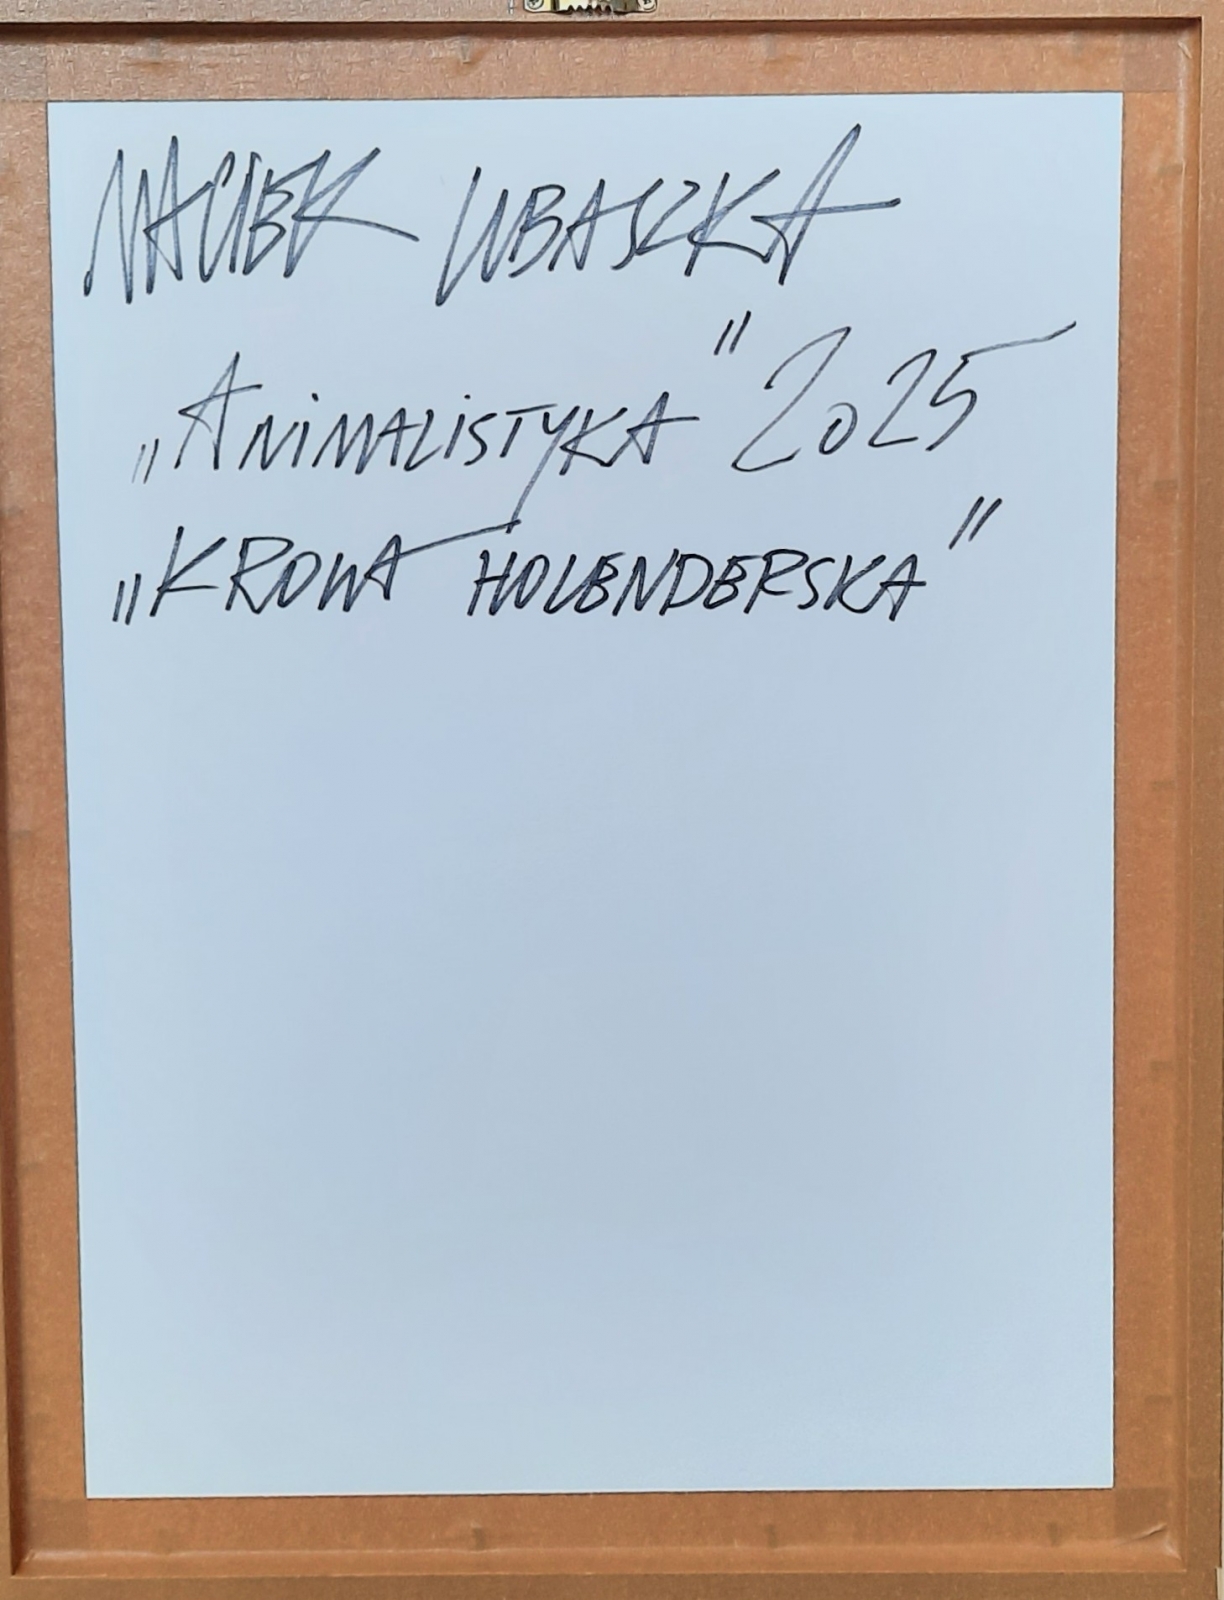 MACIEK LUBASZKA
„ANiMALiSTYKA" 2025
„KROWA HOLENDERSKA"